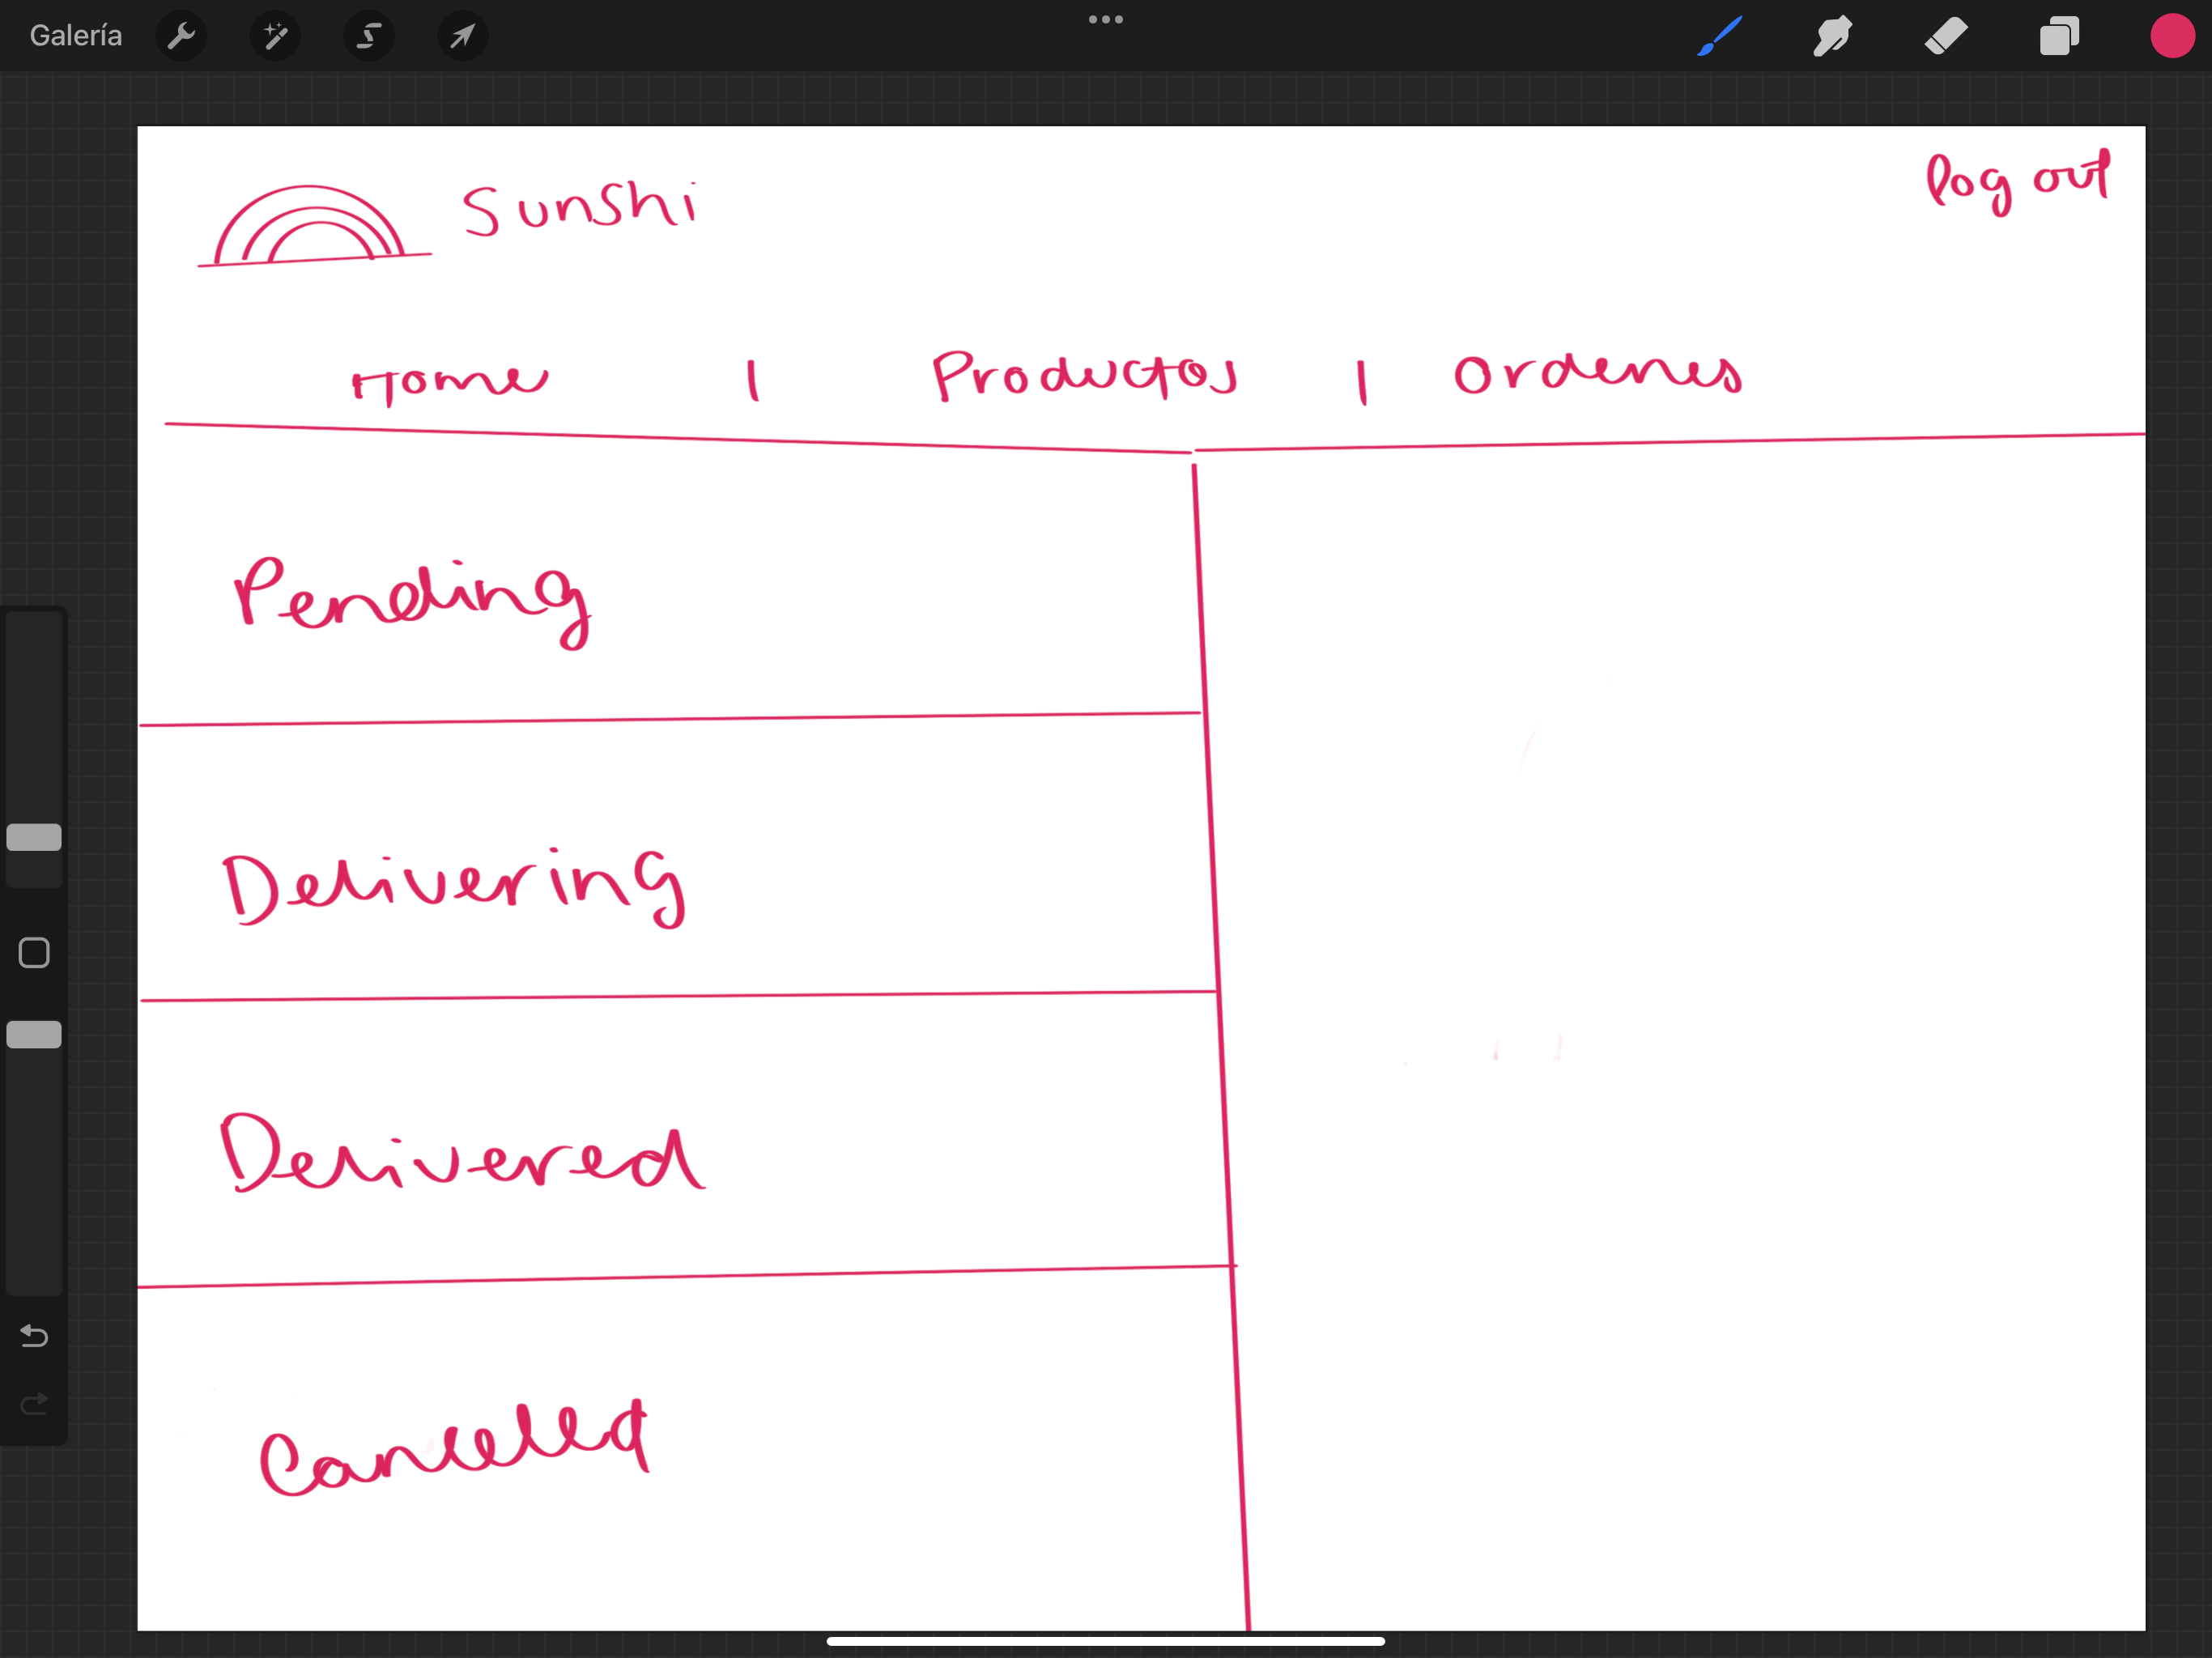 Galería
Sunshi
log out
Home | Productos | Ordenes
Pending
Delivering
Delivered
Cancelled